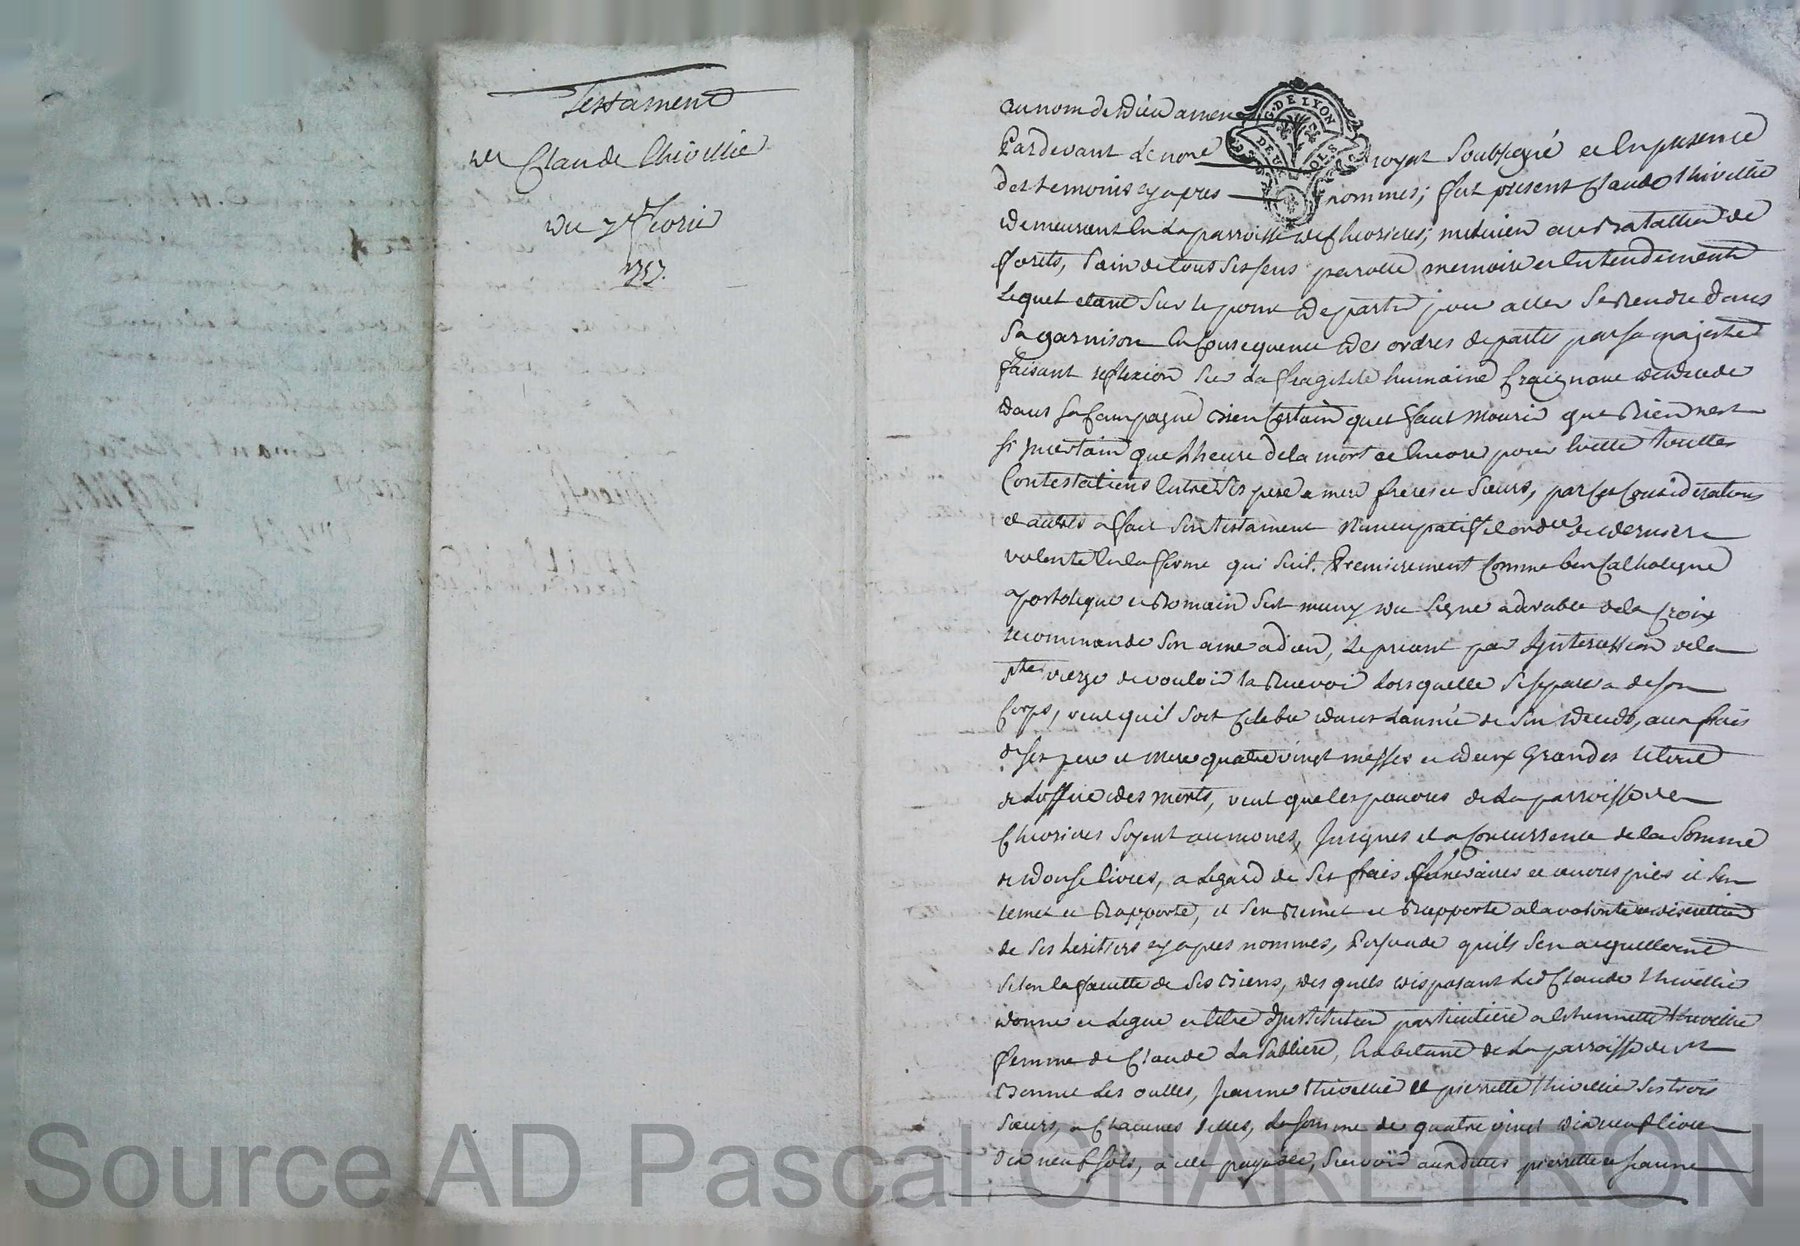 Testament
de Claude Thivillié
Du 7e fevrier
1757.
au nom de Dieu amen
G. DE LYON
DEUX SOLS
Pardevant Le nore royal Soubsigné et En presence
des temoins cy apres nommes; fut present Claude thivillié
demeurant En La parroisse de Chevrieres; milicien au Batallion de
forets, Sain de tous ses sens parolle memoire et Entendement
Lequel etant sur le point de partir pour aller se Rendre dans
Sa garnison En Consequence des ordres de partir par sa majesté
faisant reflexion sur La fragilité humaine Craignant de
dans la Campagne bien Certain quil faut mourir que Rien nest
si incertain que Lheure de la mort et Encore pour Evitter touttes
Contestations Entre ses pere et mere freres et Sœurs, par Ces Considerations
et autres a fait son testament Nuncupatif et ordce de derniere
volonté En la forme qui suit. Premierement Comme bon Catholique
apostolique et Romain sest muny du signe adorable de la Croix
recommandé son ame a dieu, Le priant par Lintercession de la
ste vierge de vouloir la Recevoir Lorsquelle se separera de son
Corps, veut quil soit Celebré dans Lannée de son deceds, aux frais
de ses pere et mere quatre vingt messes et deux Grandes
de Loffice des morts, veut que les pauvres de La parroisse de
Chevrieres soyent aumones, Jusques et a Concurrence de la Somme
de douse livres, a Legard de ses frais funeraires et œuvres pies il sen
remet et Rapporte, et sen Remet et Rapporte a la volonté et discrettion
de ses heritiers cy apres nommes, Persuadé quils sen acquitteront
selon la faculté de ses Biens, des quels disposant Led Claude thivillié
donne et Legue en titre dinstitution particuliere a Ethiennette thivillié
femme de Claude La Sabliere, habitant de La parroisse de St
Bonnet Les oulles, Jeanne thivillié et pierrette thivillié ses trois
Sœurs, a Chacunes delles, La somme de quatre vingt dix neuf livres
dix neuf sols, a elle payable, scavoir auxdittes pierrette et Jeanne
Source AD Pascal CHAREYRON